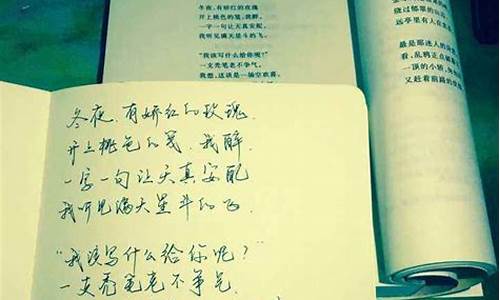 冬夜,有娇红的玫瑰
开上桃色的笺,我醉,
一字一句让天真安配,
我听见满天星斗的飞。
“我该写什么给你呢?”
一支秃笔老不争气,
我想,这该是一场空欢喜,
绕过郁翠的山
远亭里有人在
最是那迷人的
看,乱鸦正在
一顶的小轿,
又赶着前路的
冬夜,有娇红的玫瑰
开上桃色的笺.我醉.
一字一句让天真安配
我听见满天星斗的飞.
“我该写什么给你呢?”
一支秃笔老不争气.